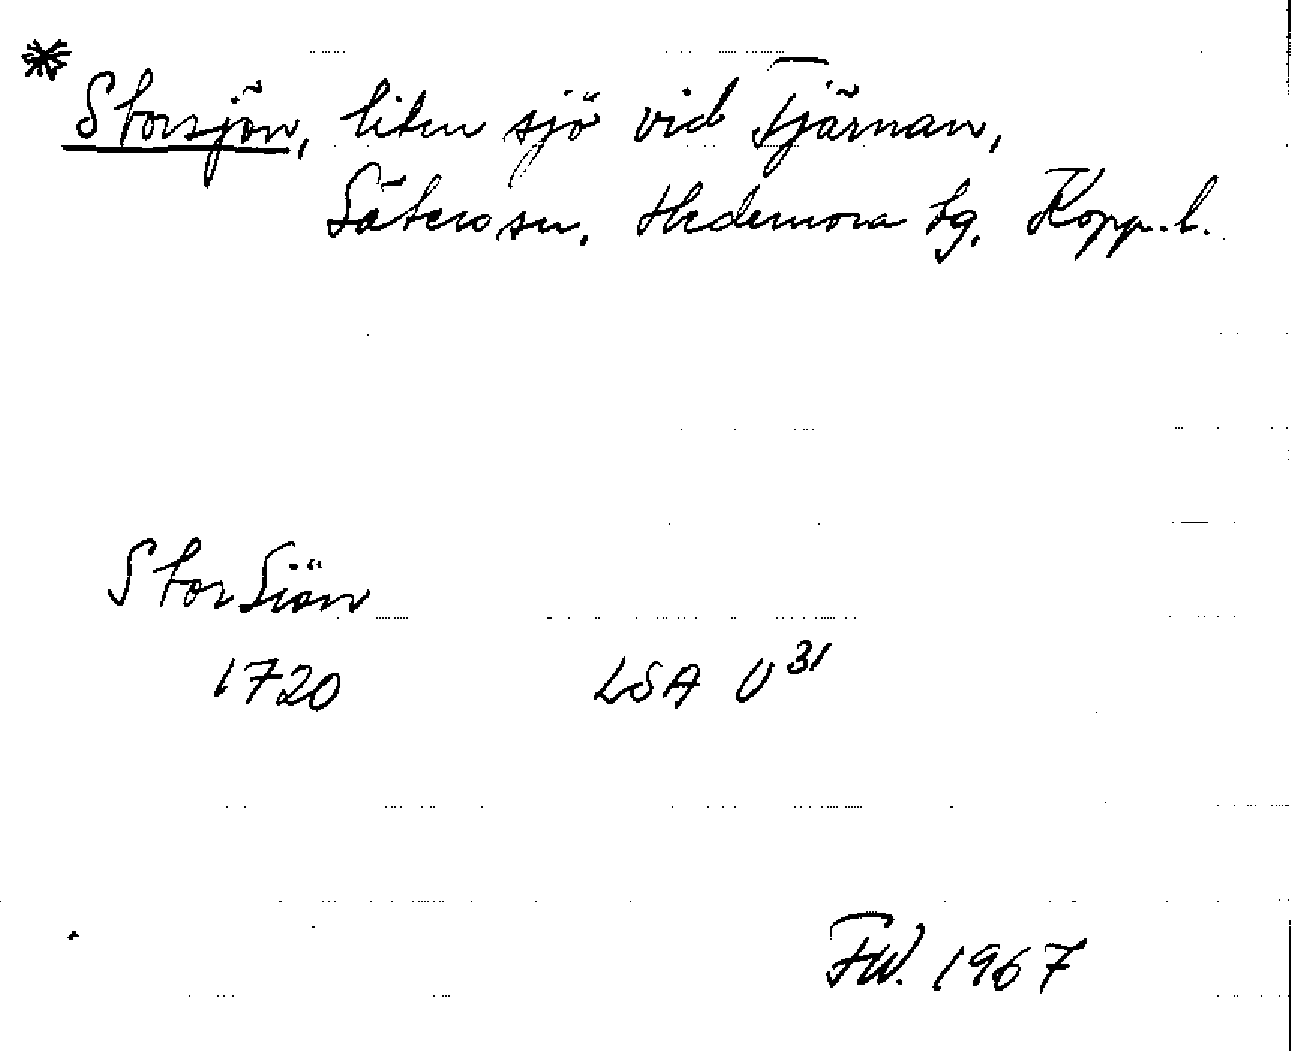 * Storsjön, liten sjö vid Tjärnan,
Säters sn. Hedemora tg. Kopp.l.
Stor Siön
1720 LSA U31
FW. 1967